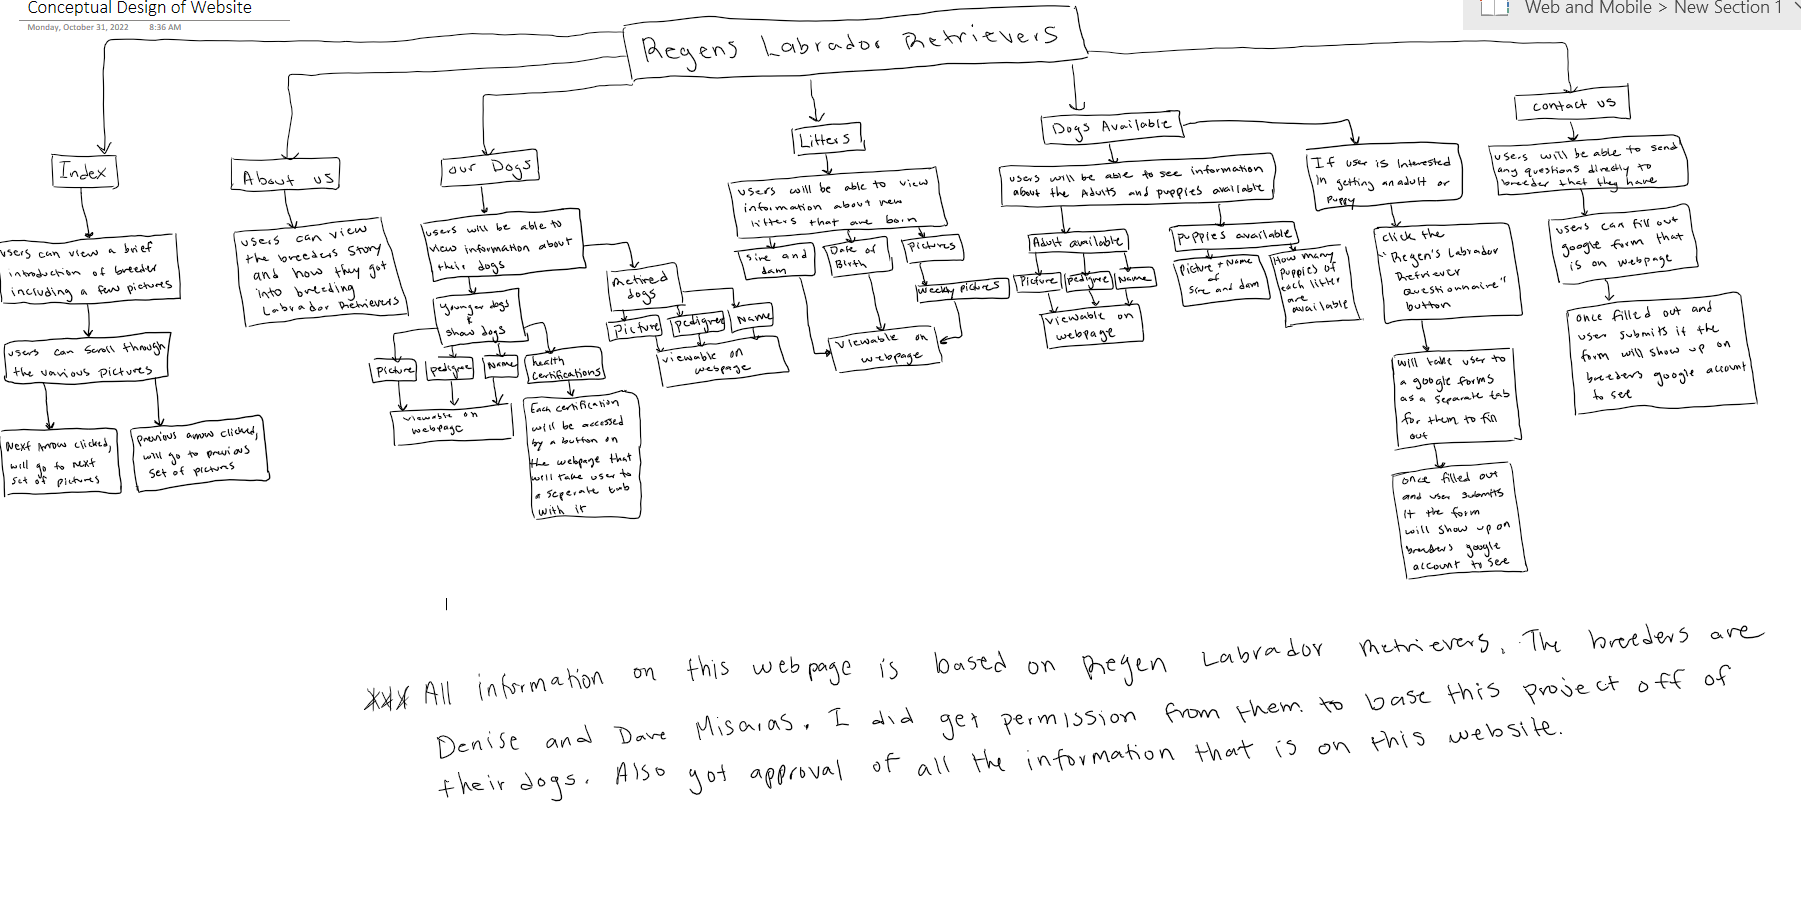 Conceptual Design of Website
Monday, October 31, 2022 8:36 AM
Web and Mobile > New Section 1
Regens Labrador Retrievers
Index
users can view a brief
introduction of breeder
including a few pictures
users can scroll through
the various pictures
Next Arrow clicked,
will go to next
set of pictures
previous arrow clicked,
will go to previous
set of pictures
About us
users can view
the breeders story
and how they got
into breeding
Labrador Retrievers
our Dogs
users will be able to
view information about
their dogs
younger dogs
&
show dogs
Picture
pedigree
Name
viewable on
webpage
health
certifications
Each certification
will be accessed
by a button on
the webpage that
will take user to
a seperate tab
with it
Retired
dogs
Picture
pedigree
Name
viewable on
webpage
Litters
users will be able to view
information about new
litters that are born
sire and
dam
Date of
Birth
Pictures
weekly pictures
viewable on
webpage
Dogs Available
users will be able to see information
about the Adults and puppies available
Adult available
Picture
pedigree
Name
viewable on
webpage
puppies available
Picture + Name
of
sire and dam
How many
puppies of
each litter
are
available
If user is Interested
in getting an adult or
puppy
click the
"Regen's Labrador
Retriever
Questionnaire"
button
will take user to
a google forms
as a separate tab
for them to fill
out
once filled out
and user submits
it the form
will show up on
breeders google
account to see
contact us
users will be able to send
any questions directly to
breeder that they have
users can fill out
google form that
is on webpage
once filled out and
user submits it the
form will show up on
breeders google account
to see
*** All information on this webpage is based on Regen Labrador Retrievers. The breeders are
Denise and Dave Misaras. I did get permission from them to base this project off of
their dogs. Also got approval of all the information that is on this website.